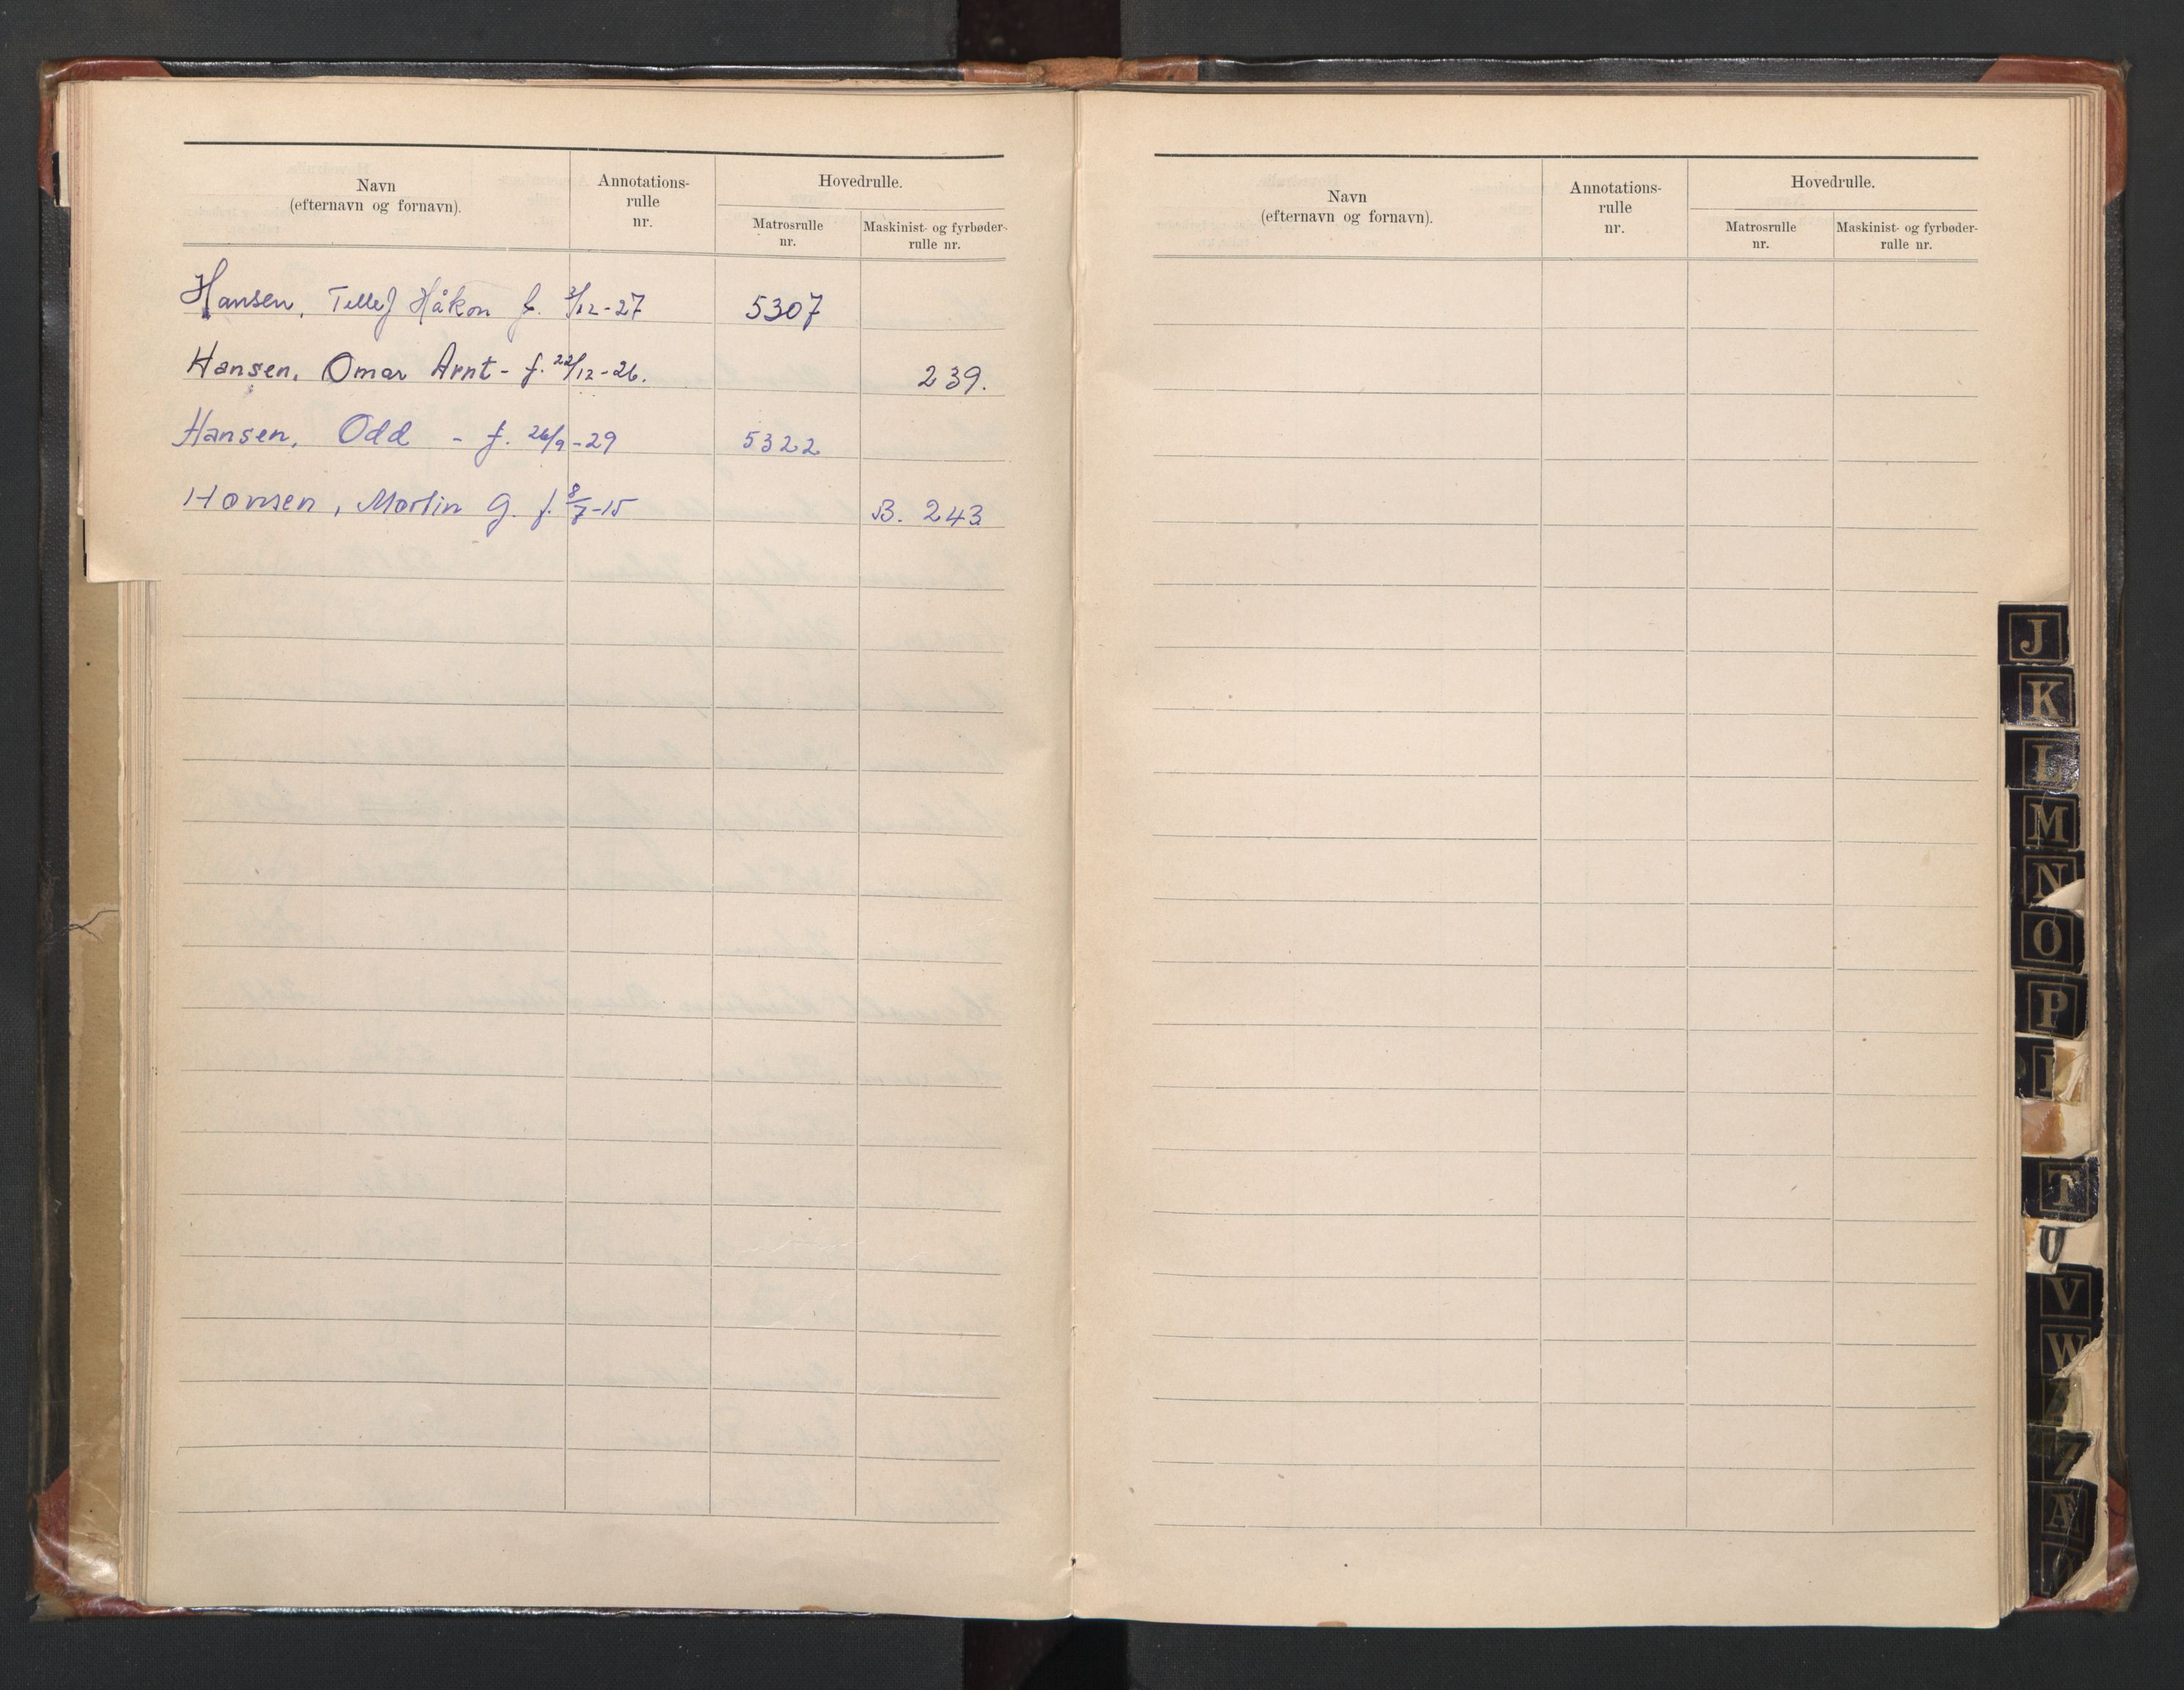 Navn
(efternavn og fornavn).
Annotations-
rulle
nr.
Hovedrulle.
Matrosrulle
nr.
Maskinist- og fyrbøder-
rulle nr.
Hansen, Tellef Håkon f. 2/12-27 5307
Hansen, Omar Arnt - f. 22/12-26. 239.
Hansen, Odd - f. 26/9-29 5322
Hansen, Martin G. f. 8/7-15 B. 243
Navn
(efternavn og fornavn).
Annotations-
rulle
nr.
Hovedrulle.
Matrosrulle
nr.
Maskinist- og fyrbøder-
rulle nr.
J
K
L
M
N
O
P
T
U
V
W
Z
Æ